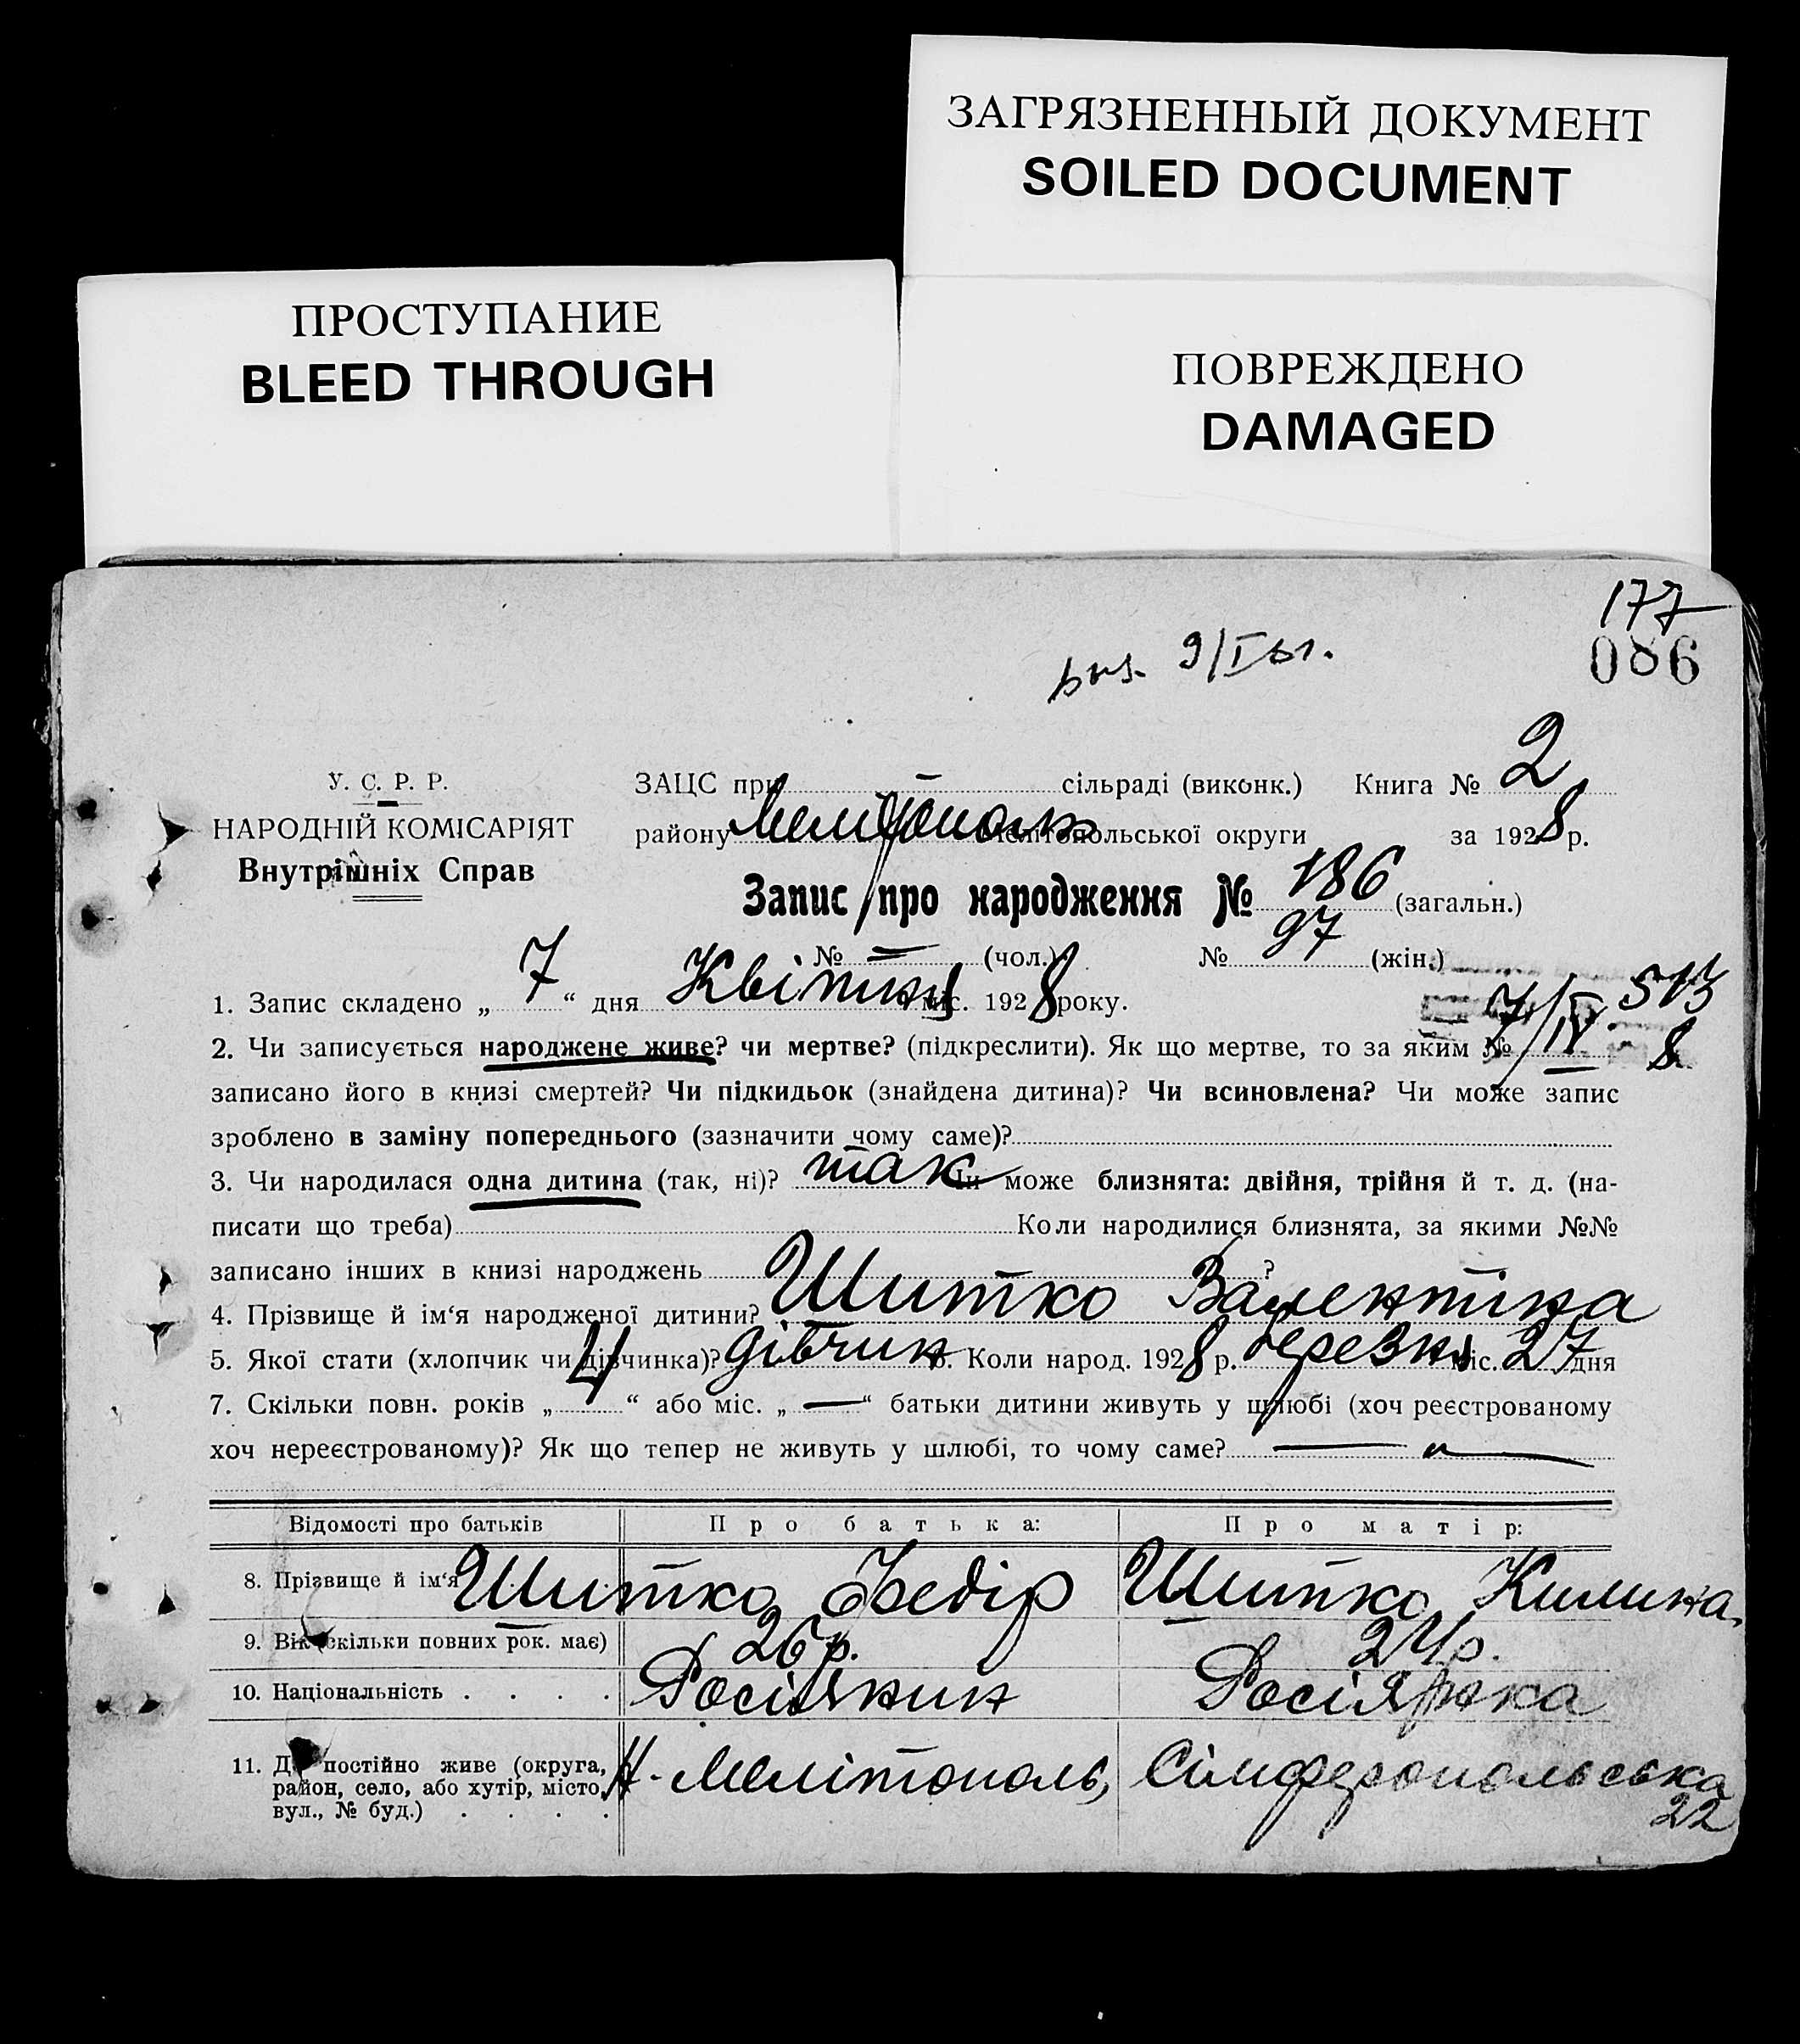 ЗАГРЯЗНЕННЫЙ ДОКУМЕНТ
SOILED DOCUMENT
ПРОСТУПАНИЕ
BLEED THROUGH
ПОВРЕЖДЕНО
DAMAGED
177
086
У. С. Р. Р.
НАРОДНІЙ КОМІСАРІЯТ
Внутрішніх Справ
ЗАЦС при — сільраді (виконк.) Книга № 2
району Мелітополь Мелітопольської округи за 1928 р.
Запис про народження № 186 (загальн.)
№ — (чол.) № 97 (жін.)
1. Запис складено „ 7 “ дня Квітня міс. 1928 року.
7/IV 8
2. Чи записується народжене живе? чи мертве? (підкреслити). Як що мертве, то за яким №
записано його в книзі смертей? Чи підкидьок (знайдена дитина)? Чи всиновлена? Чи може запис
зроблено в заміну попереднього (зазначити чому саме)?
3. Чи народилася одна дитина (так, ні)? так Чи може близнята: двійня, трійня й т. д. (на-
писати що треба) Коли народилися близнята, за якими №№
записано інших в книзі народжень ?
4. Прізвище й ім‘я народженої дитини? Шитко Валентіна
5. Якої стати (хлопчик чи дівчинка)? дівчин 6. Коли народ. 1928 р. березня міс. 27 дня
7. Скільки повн. років „ 4 “ або міс. „ — “ батьки дитини живуть у шлюбі (хоч реєстрованому
хоч нереєстрованому)? Як що тепер не живуть у шлюбі, то чому саме? —
Відомості про батьків Про батька: Про матір:
8. Прізвище й ім‘я Шитко Федір Шитко Килина
9. Вік (скільки повних рок. має) 26 р. 24 р.
10. Національність . . . . Росіянин Росіянка
11. Де постійно живе (округа, район, село, або хутір, місто, вул., № буд.) . . . . Мелітополь, Сімферопольська
22